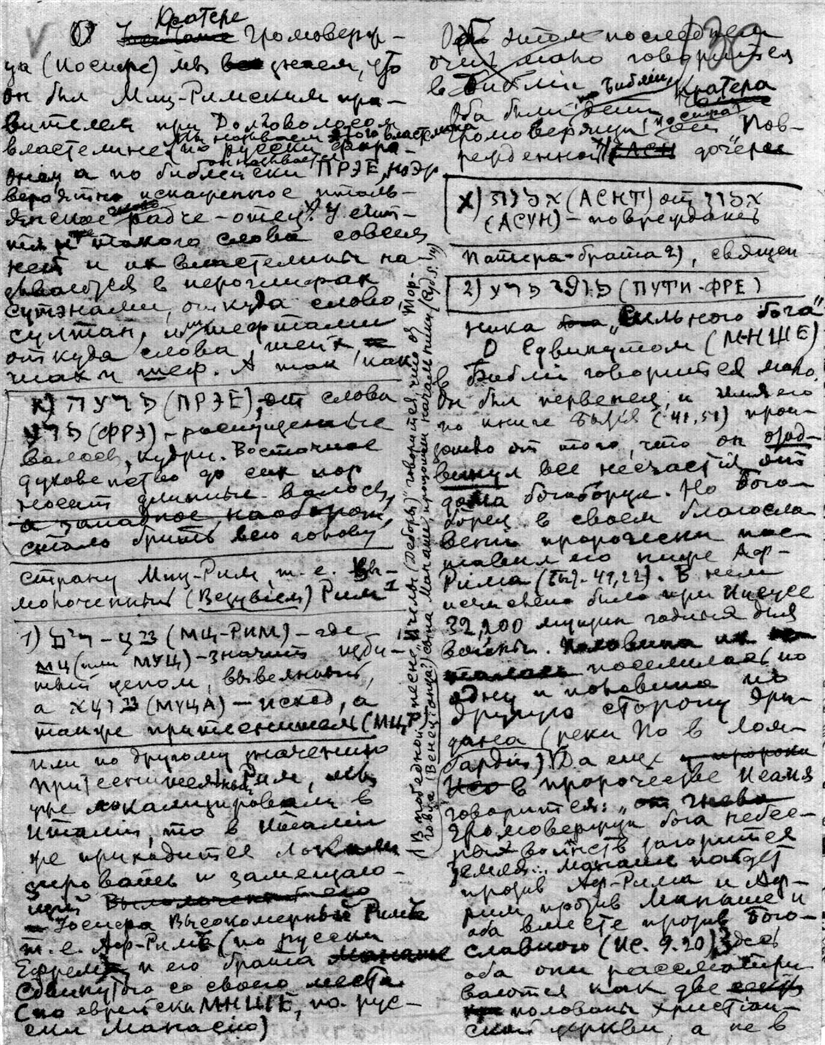 Кратере
О Громоверж-
ца (Иосифе) мы знаем, что
он был Миц-Римским пра-
вителем при Долговолосом
властелине
по русски фара-
оном а по библейски ПРЭЕ,
вероятно искаженное италь-
янское падре-отец. У егип-
тян такого слова совсем
нет и их властелины на-
зываются в иероглифах
сутэнами, откуда слово
султан, или шефтами
откуда слова шейх,
шах и шеф. А так как
х) (ПРЭЕ), от слова
(ФРЭ) - распущенные
волосы, кудри. Восточное
духовенство до сих пор
носит длинные волосы,
а западное наоборот,
стало брить всю голову
страну Миц-Рим, т. е.
мороченный (Везувием) Рим 1
1) (МЦ-РИМ) - где
МЦ (или МУЦ) - значит
цепом,
а (МУЦА) - исход, а
также притеснителем (МЦ
или по другому значению
Рим, мы
уже локализировали в
Италии, то в Италии
же приходится локали-
зировать и замещаю-
щий
Иосифа Высокомерный Рим
т. е. Аф-Рим (по русски
Ефрем) и его брата
Сдвинутого со своего места
(по еврейски МНШЕ, по рус-
ски Манасию)
(В победной песне Пчелы (Деборы) говорится, что от Тор-
говца (Венецианца?) сына Манаше прошли начальники (Суд. 5.14)
130
Об этом последнем
очень мало говорится
в Библии
по Библии Кратера
Оба были дети
Громовержца Иосифа
и Пов-
режденной дочери
х) (АСНТ) от
(АСУН) - повреждать
Патера-брата 2), священ-
2) (ПУТИ-ФРЕ)
ника „Сильного бога"
О Сдвинутом (МНШЕ)
в Библии говорится мало
Он был первенец и имя его
по книге Бытия (41,51) прои-
зошло от того, что он отод-
винул все несчастия от
дома богоборца. Но Бого-
борец в своем благосло-
вении пророчески пос-
тавил его ниже Аф-
Рима (Быт. 48,22). В нем
исчислено было при Иисусе
32,200 мущин годных для
войны. Половина их
поселилась по
одну и половина по
другую сторону Эри-
дана (реки По в Лом-
бардии). Да еще
в пророчестве Исаия
говорится: „от гнева
Громовержца бога небес-
ных воинств загорится
земля.. Манаше пойдет
против Аф-Рима и Аф-
рим против Манаше и
оба вместе против Бого-
славного (Ис. 9.20) Здесь
оба они рассматри-
ваются как две
половины христиан-
ской церкви, а не в